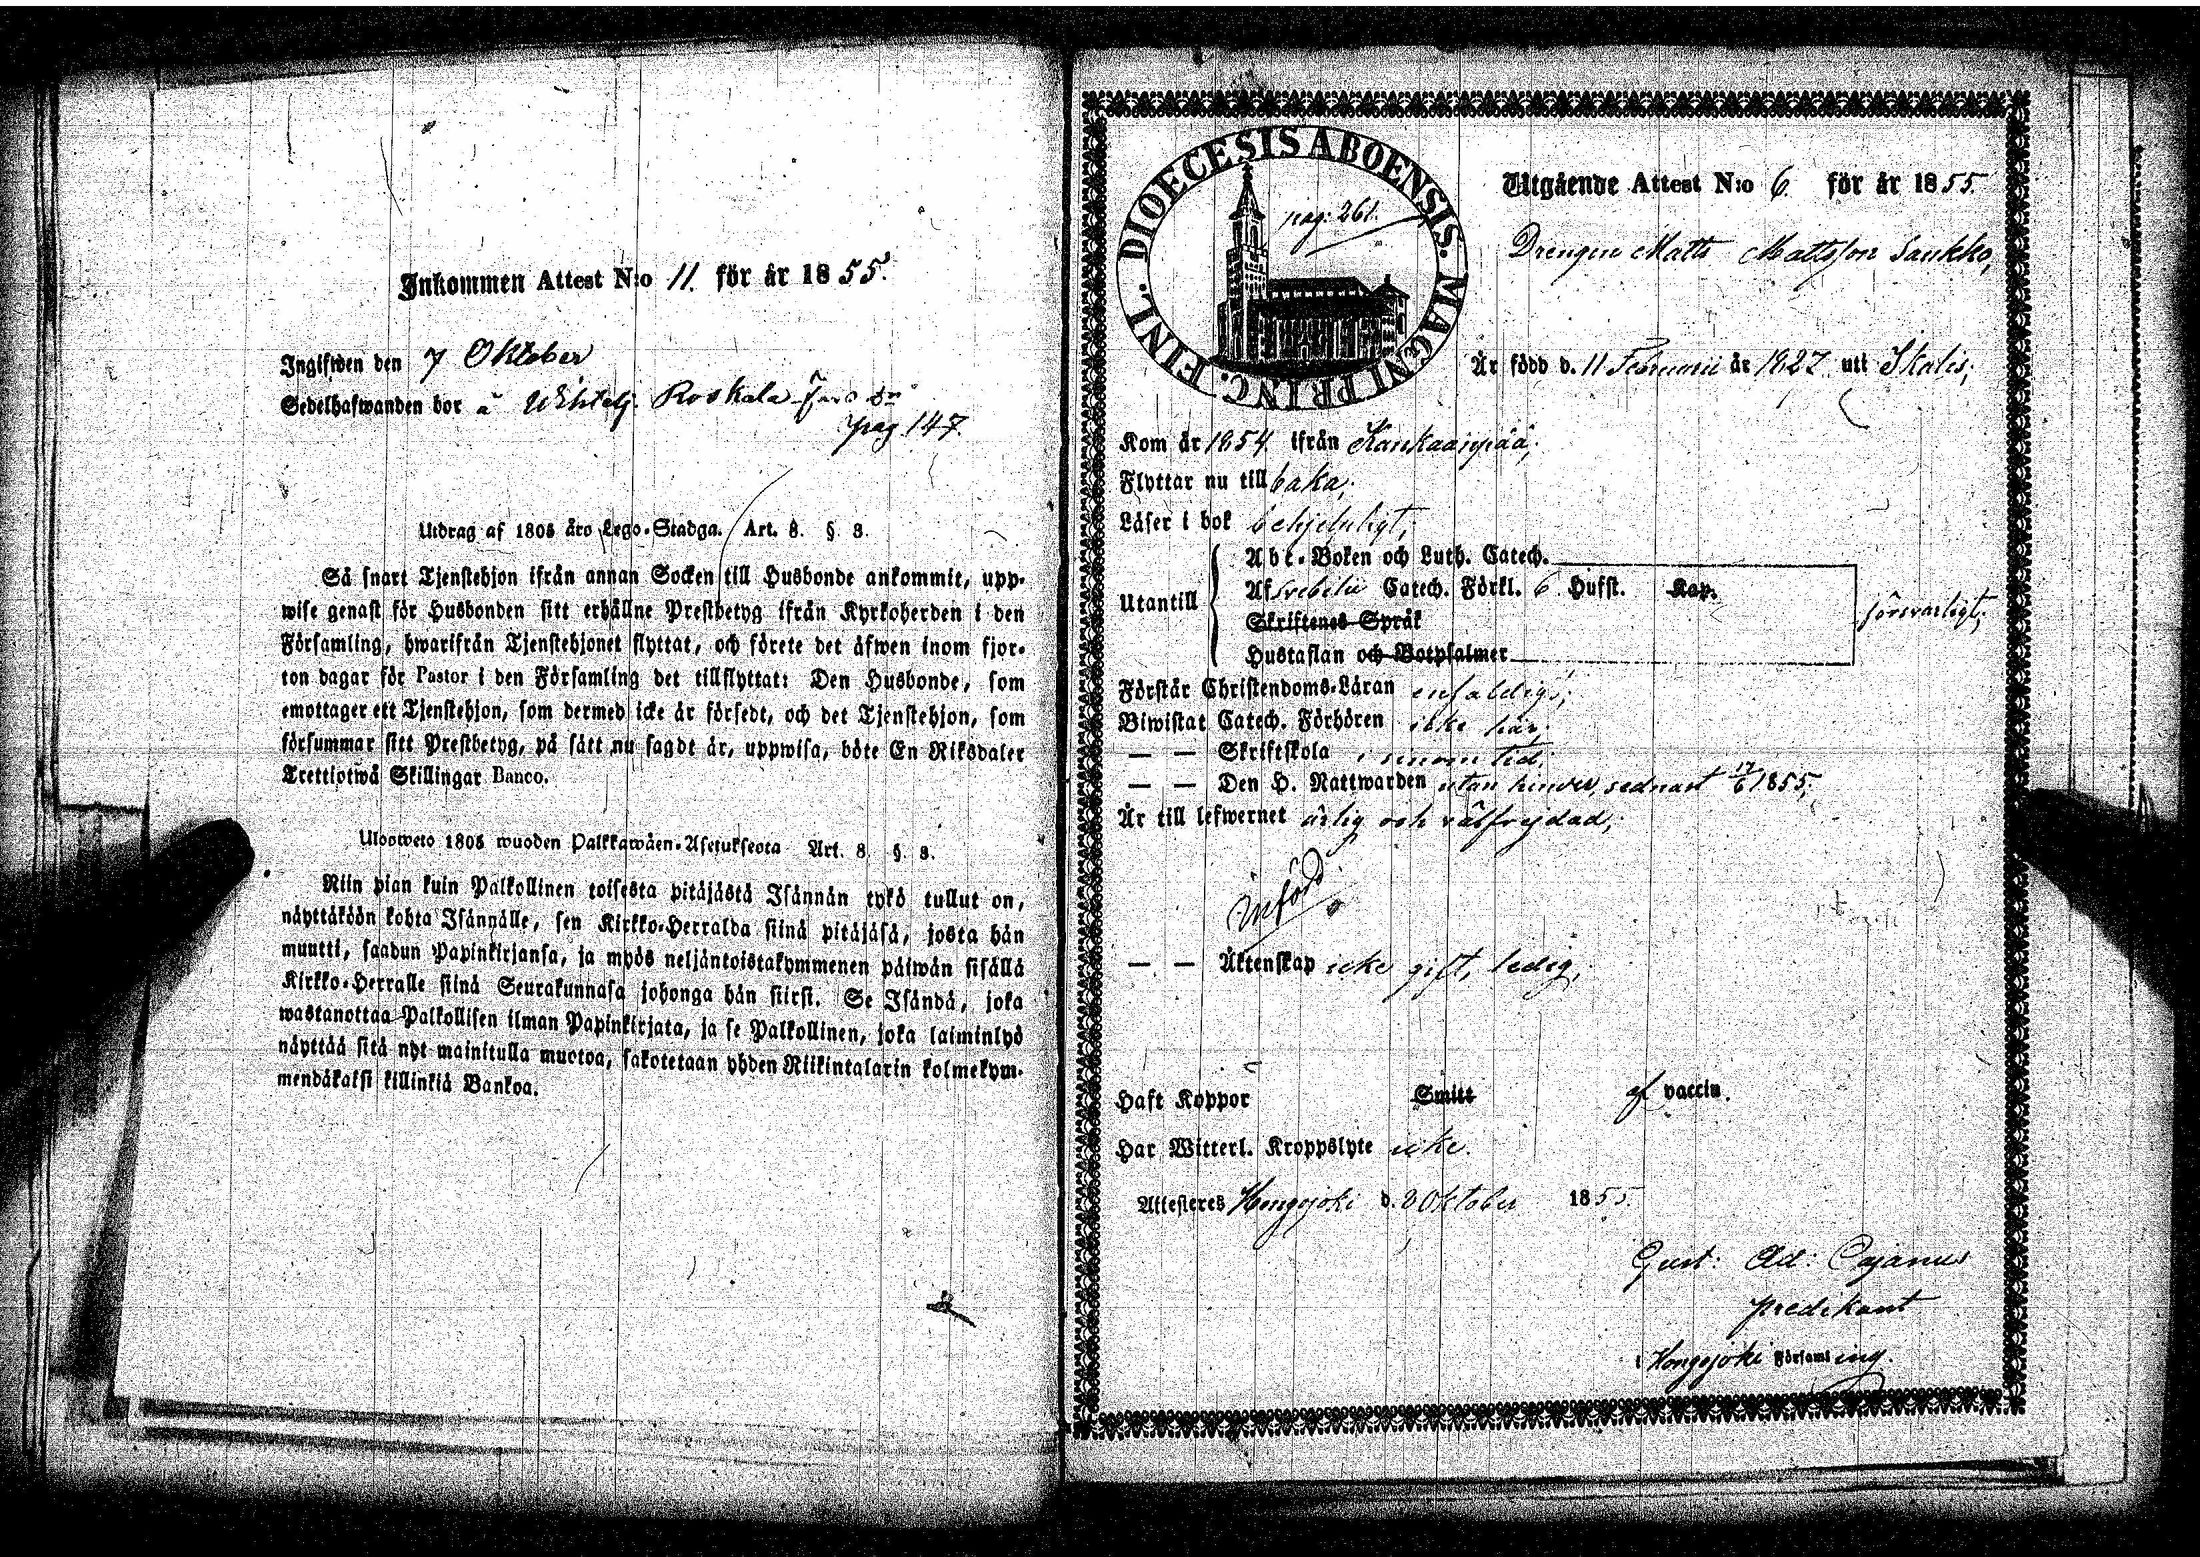 Inkommen Attest N:o 11. för år 1855.
Ingifwen den 7 Oktober
Sedelhafwanden bor å Wihtelj. Roskala
pag. 147.
Utdrag af 1805 års Lego-Stadga. Art. 8. § 3.
Så snart Tjenstehjon ifrån annan Socken till Husbonde ankommit, upp-
wise genast för Husbonden sitt erhållne Prestbetyg ifrån Kyrkoherden i den
Församling, hwarifrån Tjenstehjonet flyttat, och förete det äfwen inom fjor-
ton dagar för Pastor i den Församling det tillflyttat: Den Husbonde, som
emottager ett Tjenstehjon, som dermed icke är försedt, och det Tjenstehjon, som
försummar sitt Prestbetyg, på sätt nu sagdt är, uppwisa, böte En Riksdaler
Trettiotwå Skillingar Banco.
Ulosweto 1805 wuoden Palkkawäen-Asetuksesta Art. 8. §. 3.
Niin pian kuin Palkollinen toisesta pitäjästä Isännän tykö tullut on,
näyttäköön kohta Isännälle, sen Kirkko-Herralda siinä pitäjäsä, josta hän
muutti, saadun Papinkirjansa, ja myös neljäntoistakymmenen päiwän sisällä
Kirkko-Herralle siinä Seurakunnasa johonga hän siirsi. Se Isändä, joka
wastanottaa Palkollisen ilman Papinkirjata, ja se Palkollinen, joka laiminlyö
näyttää sitä nyt mainitulla muotoa, sakotetaan yhden Riikintalarin kolmekym-
mendäkaksi killinkiä Bankoa.
DIOECESIS ABOENSIS. MAGNI PRINC. FINL.
pag: 261.
Utgående Attest N:o 6. för år 1855.
Drengen Matts Mattsson Saukko,
Är född d. 11 Februarii år 1827 uti Ikalis,
Kom år 1854 ifrån Kankaanpää,
Flyttar nu till baka,
Läser i bok behjelpligt,
Utantill
Abc-Boken och Luth. Catech.
Af Svebelii Catech. Förkl. 6 Hufst. Kap.
Skriftenes Språk
Hustaflan och Botpsalmer
försvarligt,
Förstår Christendoms-Läran enfaldigt,
Biwistat Catech. Förhören icke här,
— — Skriftskola i sinom tid,
— — Den H. Nattwarden utan hinder, sednast 17/6 1855,
Är till lefwernet ärlig och välfrejdad,
Införd
— — Äktenskap icke gift, ledig,
Haft Koppor Smitt af vaccin.
Har Witterl. Kroppslyte icke.
Attesteres Hongojoki d. 2 Oktober 1855.
Gust: Ad: Cajanus
predikant
i Hongojoki Församling.